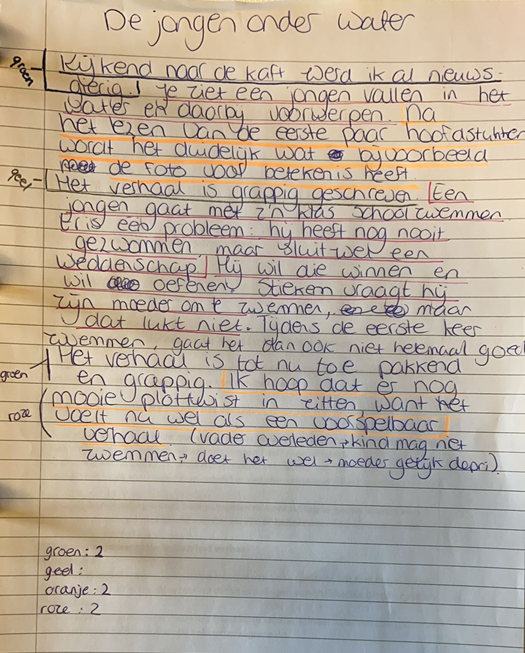 De jongen onder water
groen
Kijkend naar de kaft werd ik al nieuws-
gierig. Je ziet een jongen vallen in het
water en daarbij voorwerpen. Na
het lezen van de eerste paar hoofdstukken
wordt het duidelijk wat bijvoorbeeld
de foto voor betekenis heeft
geel
Het verhaal is grappig geschreven Een
jongen gaat met z'n klas schoolzwemmen.
Er is één probleem: hij heeft nog nooit
gezwommen maar sluit wel een
weddenschap! Hij wil die winnen en
wil oefenen. Stiekem vraagt hij
zijn moeder om te zwemmen, maar
dat lukt niet. Tijdens de eerste keer
zwemmen, gaat het dan ook niet helemaal goed
groen
Het verhaal is tot nu toe pakkend
en grappig. Ik hoop dat er nog
roze
mooie plottwist in zitten want het
voelt nu wel als een voorspelbaar
verhaal. (vader overleden → kind mag niet
zwemmen → doet het wel → moeder gelijk depri).
groen: 2
geel:
oranje: 2
roze: 2